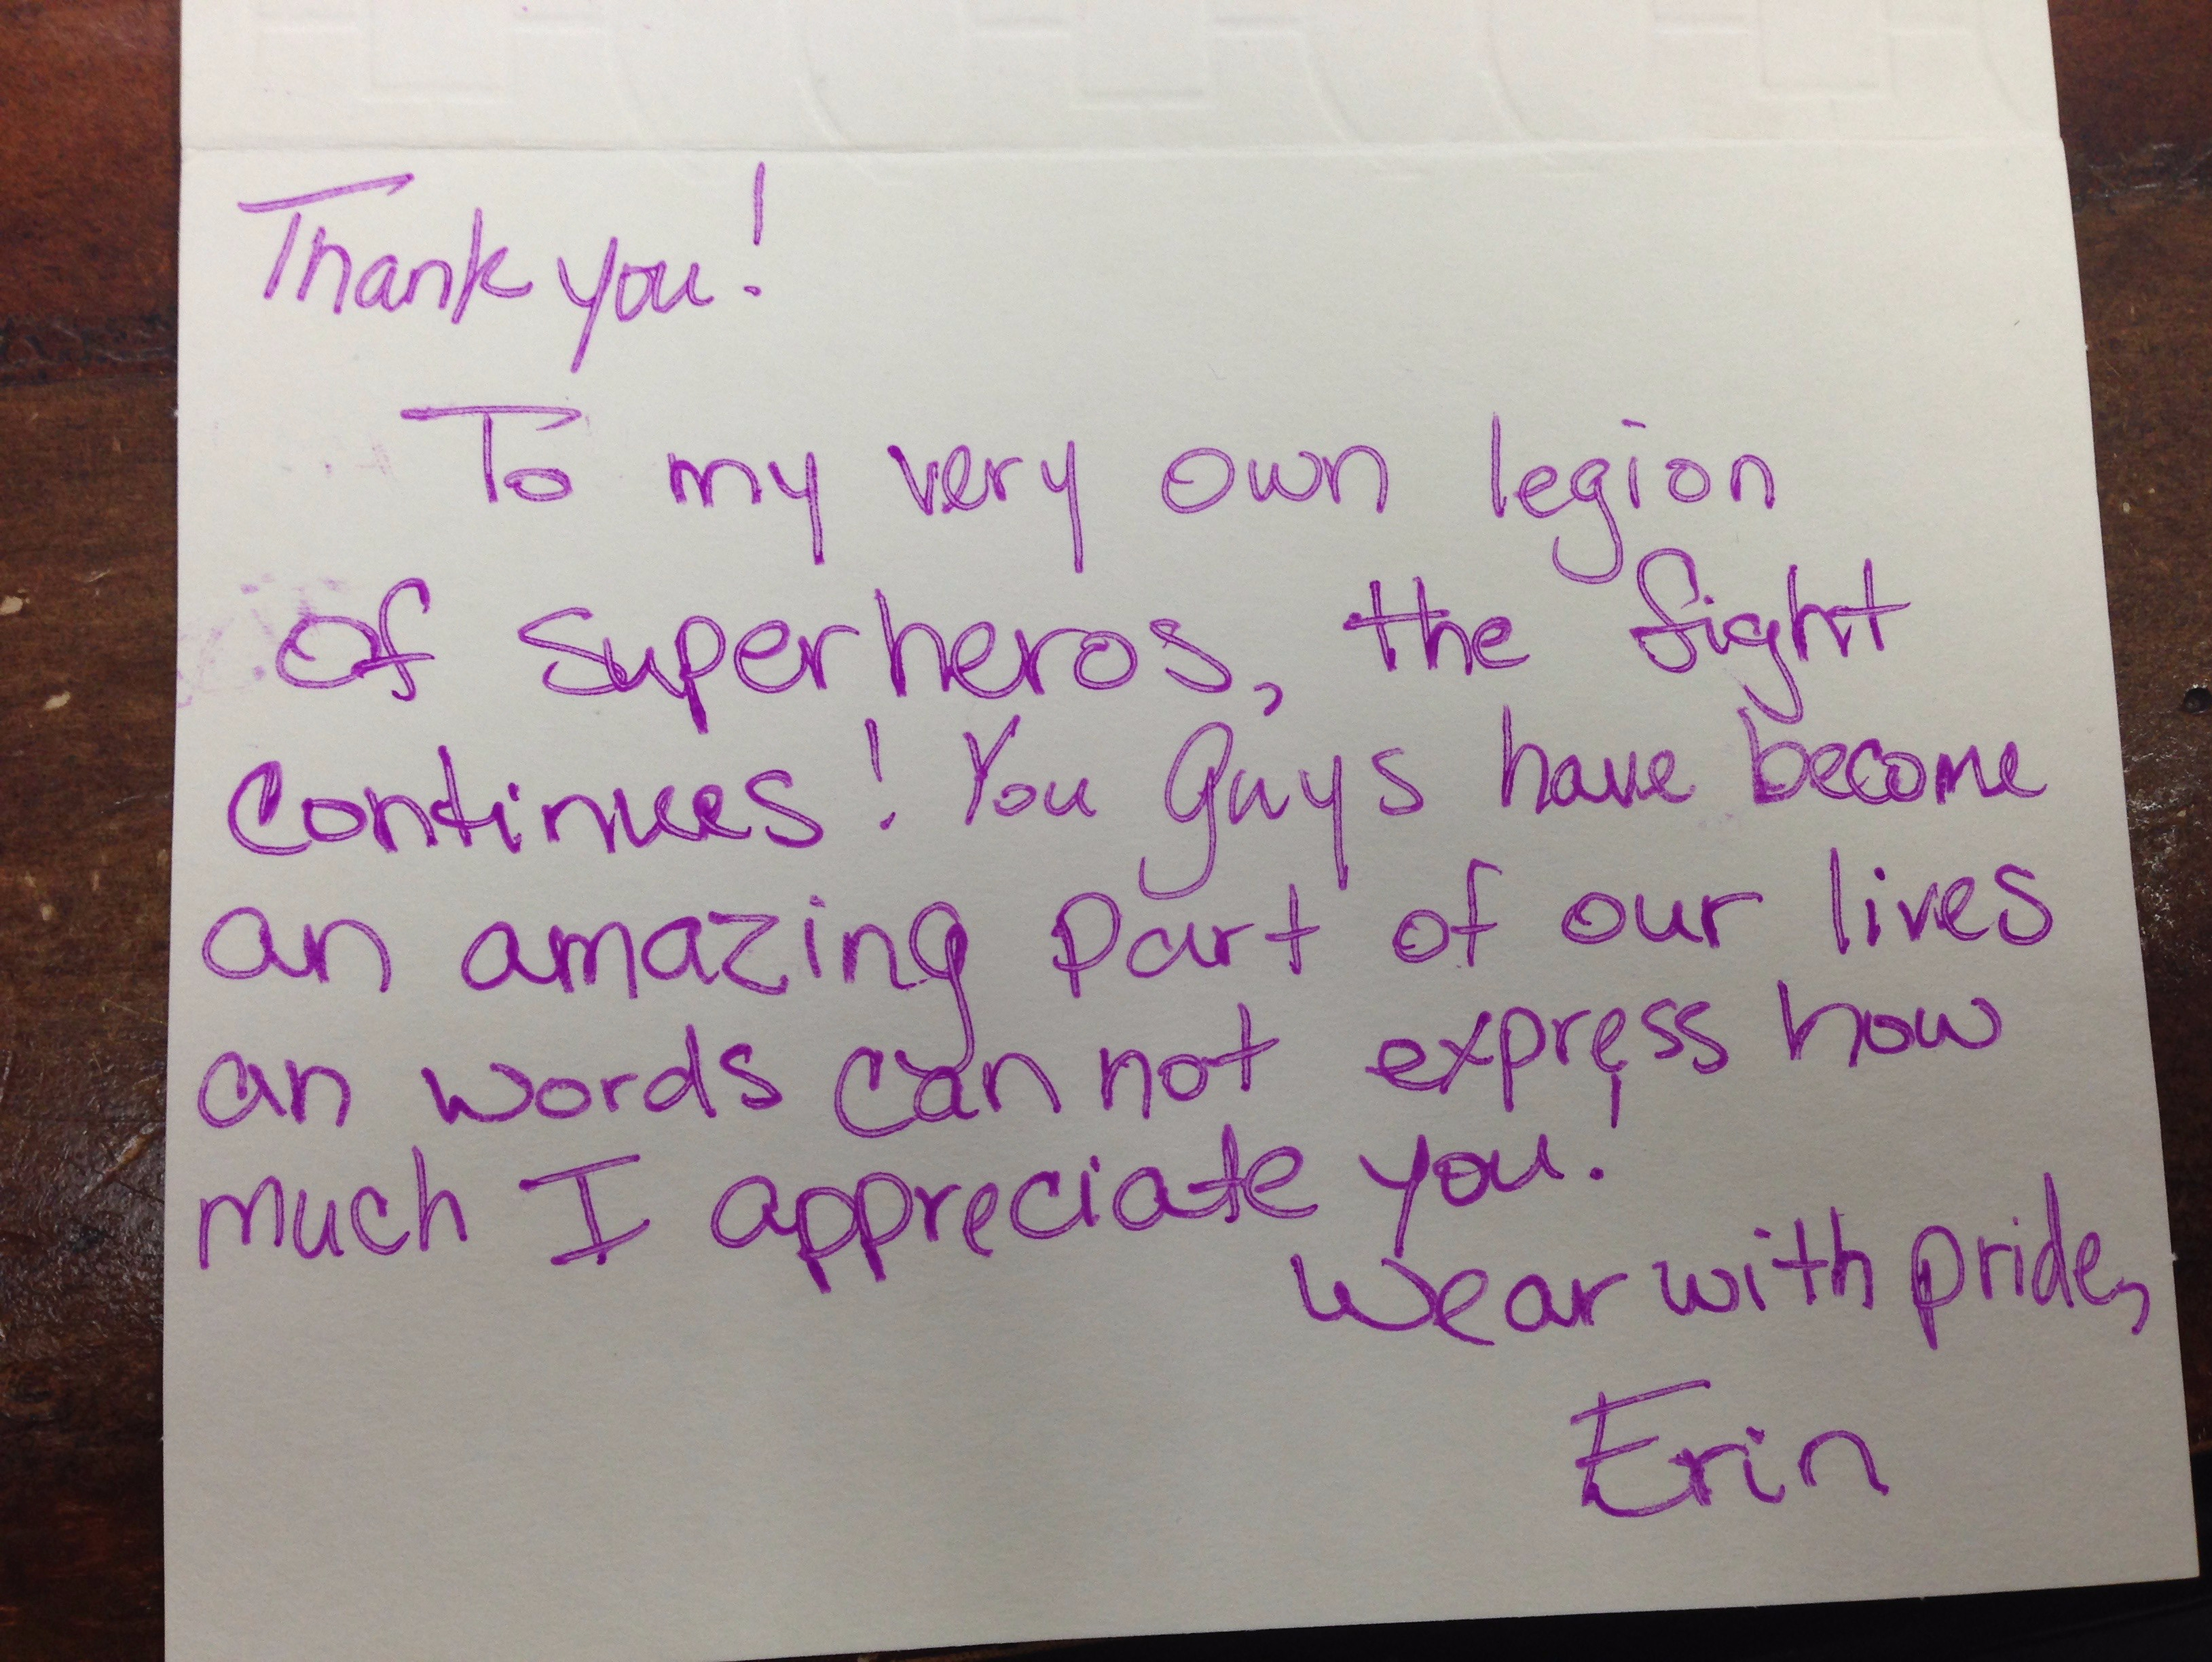 Thank you!
To my very own legion
of superheros, the fight
continues! You guys have become
an amazing part of our lives
an words can not express how
much I appreciate you!
Wear with pride,
Erin